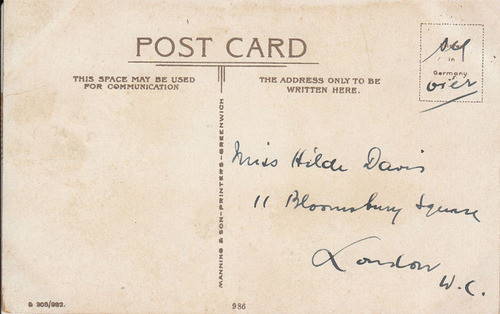 POST CARD
THIS SPACE MAY BE USED
FOR COMMUNICATION
THE ADDRESS ONLY TO BE
WRITTEN HERE.
see
in
Germany
over
MANNING & SON-PRINTERS-GREENWICH
Miss Hilda Davis
11 Bloomsbury Square
London
W.C.
986